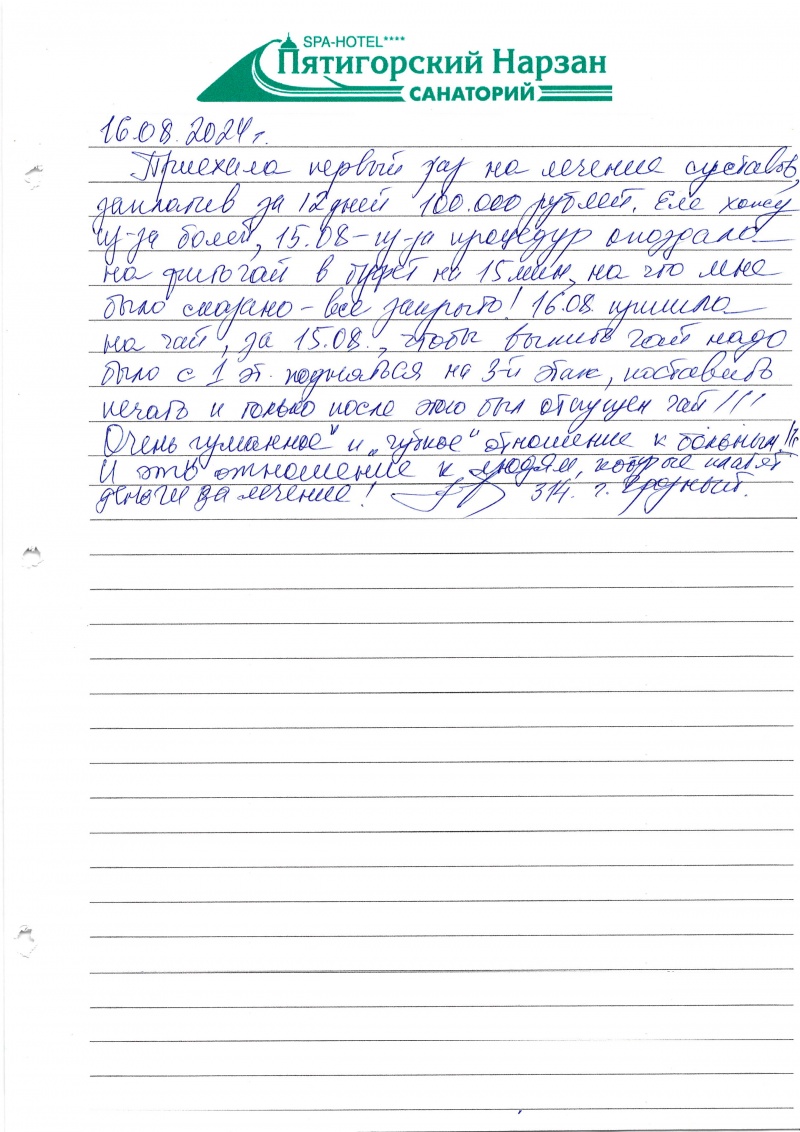 SPA-HOTEL****
Пятигорский Нарзан
САНАТОРИЙ
16.08.2024 г.
Приехала первый раз на лечение суставов,
заплатив за 12 дней 100.000 рублей. Еле хожу
из-за болей, 15.08 – из-за процедур опоздала
на фиточай в буфет на 15 мин, на что мне
было сказано – все закрыто! 16.08. пришла
на чай, за 15.08., чтобы выпить чай надо
было с 1 эт. подняться на 3-й этаж, поставить
печать и только после этого был отпущен чай!!!
Очень гуманное" и „чуткое" отношение к больным!!!
И это отношение к людям, которые платят
деньги за лечение! 314. г. Грозный.